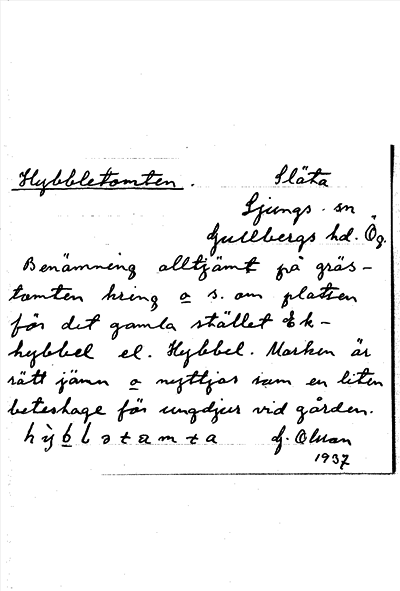 Hybbletomten. Släta
Ljungs. sn
Gullbergs hd. Ög.
Benämning alltjämt på gräs-
tomten kring o s. om platsen
för det gamla stället Ek-
hybbel el. Hybbel. Marken är
rätt jämn o nyttjas som en liten
beteshage för ungdjur vid gården.
G. Olson
1937